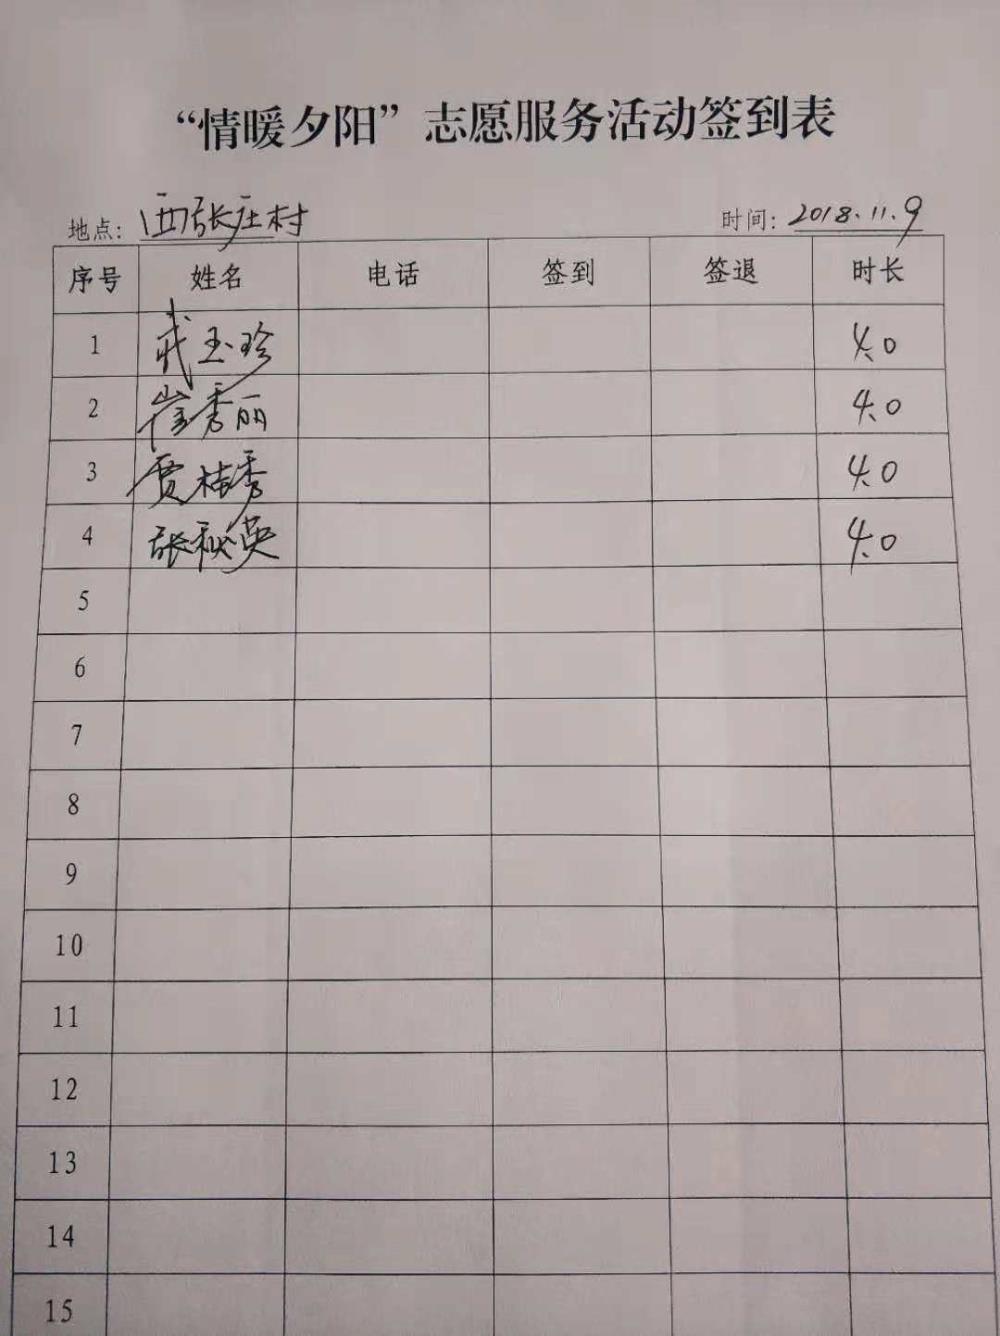 “情暖夕阳”志愿服务活动签到表
地点：西张庄村 时间：2018.11.9
序号 姓名 电话 签到 签退 时长
1 武玉珍 4.0
2 崔秀丽 4.0
3 贾桂秀 4.0
4 张秋英 4.0
5
6
7
8
9
10
11
12
13
14
15